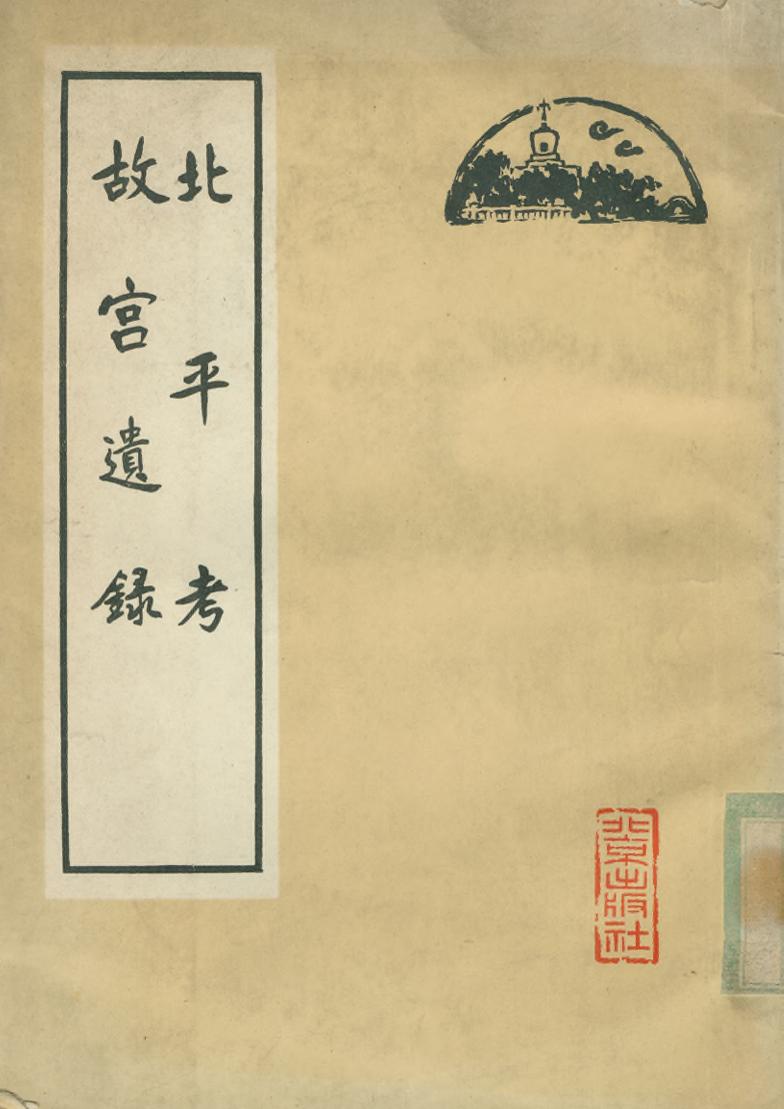 北平考
故宫遺録
北京出版社